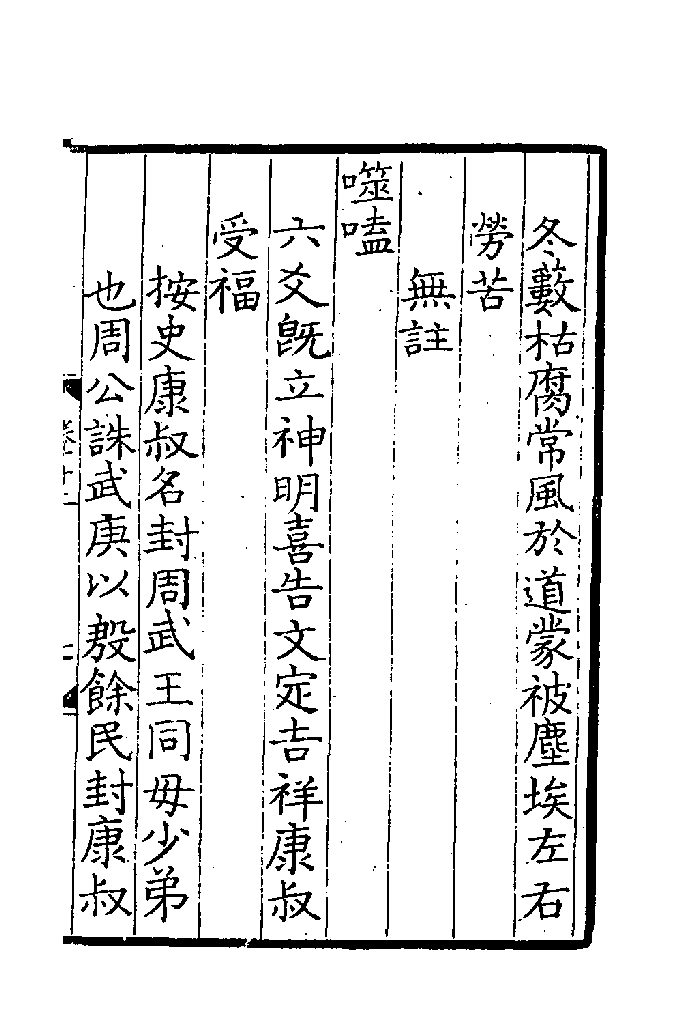 冬藪枯腐常風於道蒙被塵埃左右
勞苦
無註
噬嗑
六爻旣立神明喜告文定吉祥康叔
受福
按史康叔名封周武王同毋少弟
也周公誅武庚以殷餘民封康叔